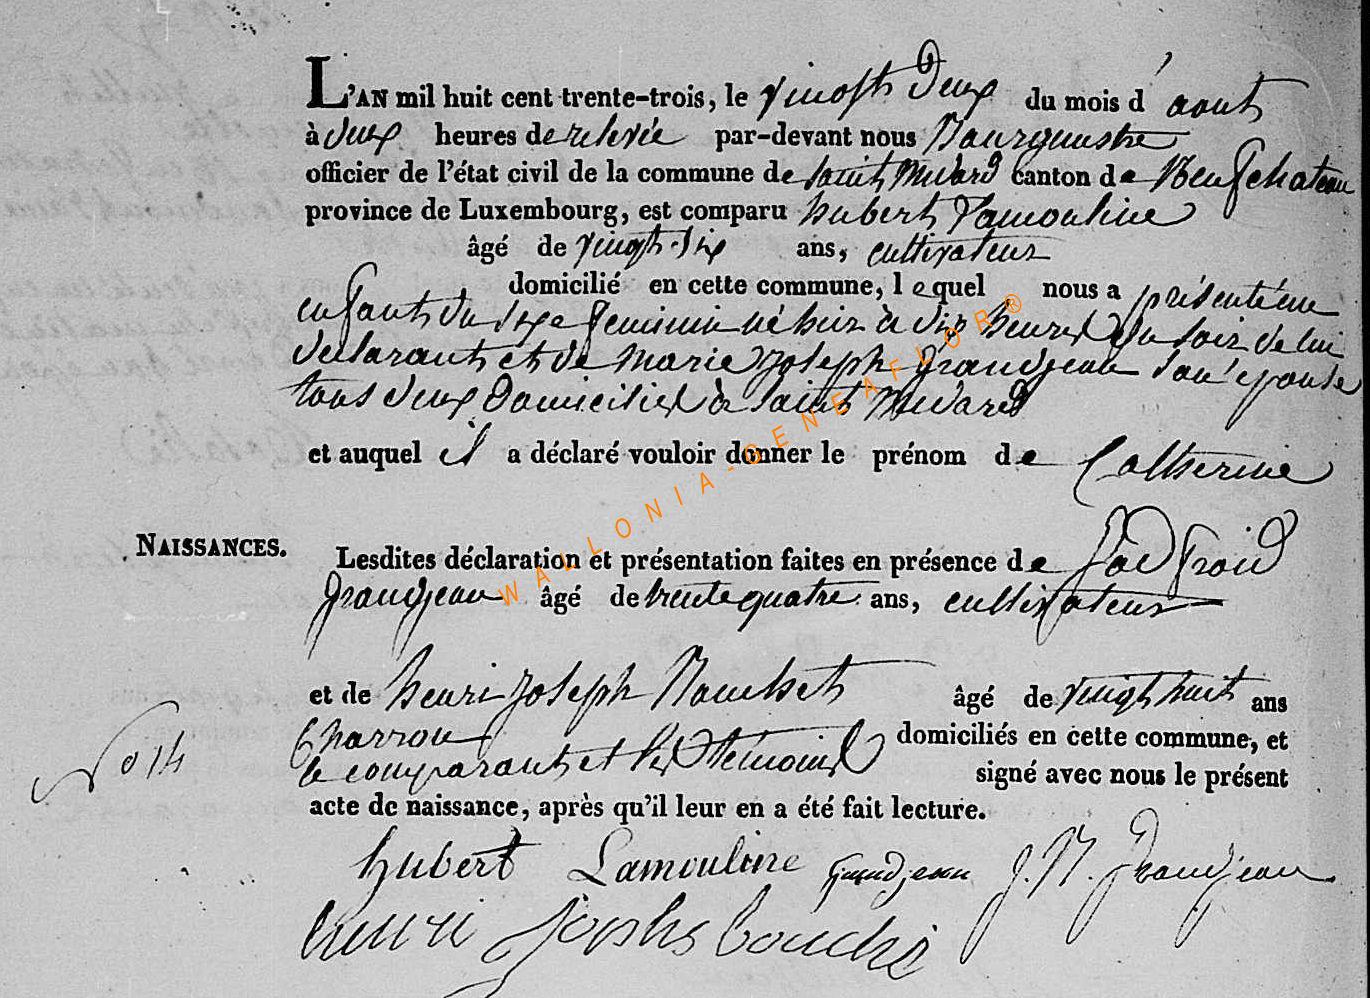 L'AN mil huit cent trente-trois, le vingt deux du mois d'aout
à deux heures de relevée par-devant nous Bourguestre
officier de l'état civil de la commune de Saint Médard canton de Neufchateau
province de Luxembourg, est comparu hubert Lamouline
âgé de vingt-six ans, cultivateur
domicilié en cette commune, lequel nous a présenté un
enfant du sexe feminin né hier à dix heures du soir de lui
declarant et de marie joseph grandjean son epouse
tous deux domiciliés à Saint Médard
et auquel il a déclaré vouloir donner le prénom de Catherine
NAISSANCES.
Lesdites déclaration et présentation faites en présence de
grandjean âgé de trente quatre ans, cultivateur
et de henri joseph Bouchet âgé de vingt huit ans
Charron domiciliés en cette commune, et
le comparant et les témoins signé avec nous le présent
No 14
acte de naissance, après qu'il leur en a été fait lecture.
hubert Lamouline grandjean J. N. Grandjean
henri joseph bouché
WALLONIA-GENEAFLOR®